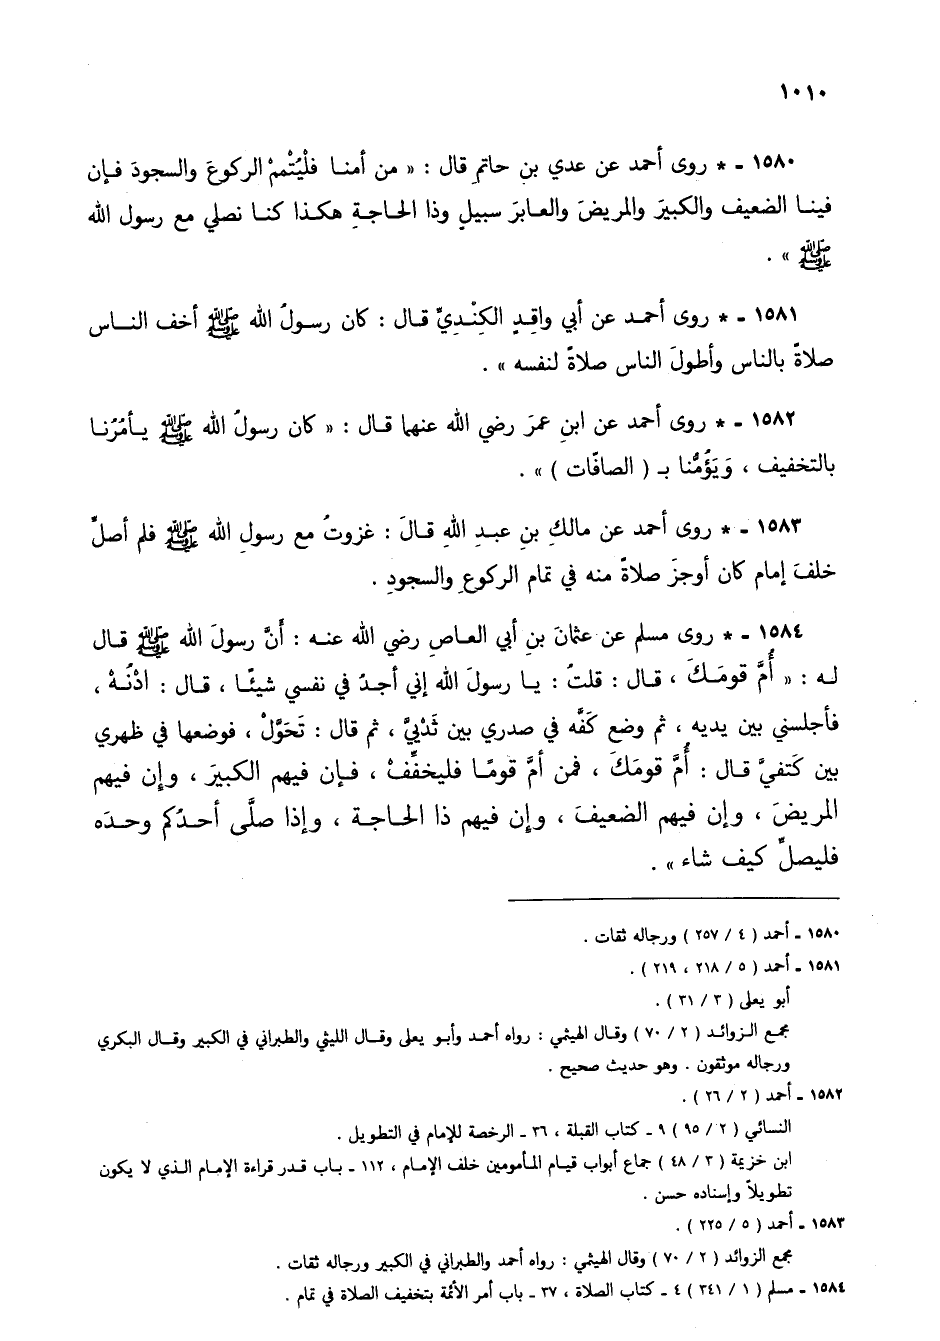 ١٠١٠
١٥٨٠ ـ * روى أحمد عن عدي بنِ حاتمٍ قال : « من أمنا فلْيُتْممْ الركوعَ والسجودَ فإن
فينا الضعيف والكبيرَ والمريضَ والعابرَ سبيلٍ وذا الحاجةِ هكذا كنا نصلي مع رسول الله
ﷺ » .
١٥٨١ ـ * روى أحمد عن أبي واقِدٍ الكِنْديِّ قال : كان رسولُ الله ﷺ أخف الناس
صلاةً بالناس وأطولَ الناس صلاةً لنفسه » .
١٥٨٢ ـ * روى أحمد عن ابنِ عمرَ رضي الله عنهما قال : « كان رسولُ الله ﷺ يأمُرُنا
بالتخفيف ، وَيَؤُمُّنا بـ ( الصافّات ) » .
١٥٨٣ ـ * روى أحمد عن مالكِ بنِ عبدِ اللهِ قالَ : غزوتُ مع رسولِ الله ﷺ فلم أصلِّ
خلفَ إمام كان أوجزَ صلاةً منه في تمام الركوعِ والسجودِ .
١٥٨٤ ـ * روى مسلم عن عثمانَ بنِ أبي العاصِ رضي الله عنه : أَنَّ رسولَ الله ﷺ قال
له : « أُمَّ قومَكَ ، قال : قلتُ : يا رسولَ الله إني أجدُ في نفسي شيئًا ، قال : ادْنُهْ ،
فأجلسني بين يديه ، ثم وضع كَفَّه في صدري بين ثَدْييَّ ، ثم قال : تَحَوَّلْ ، فوضعها في ظهري
بين كَتفيَّ قال : أُمَّ قومَكَ ، فمن أمَّ قومًا فليخفِّفْ ، فإن فيهم الكبيرَ ، وإن فيهم
المريضَ ، وإن فيهم الضعيفَ ، وإن فيهم ذا الحاجة ، وإذا صلَّى أحدُكم وحدَه
فليصلِّ كيف شاء » .
١٥٨٠ ـ أحمد ( ٤ / ٢٥٧ ) ورجاله ثقات .
١٥٨١ ـ أحمد ( ٥ / ٢١٨ ، ٢١٩ ) .
أبو يعلى ( ٣ / ٣١ ) .
مجمع الزوائد ( ٢ / ٧٠ ) وقال الهيثمي : رواه أحمد وأبو يعلى وقال الليثي والطبراني في الكبير وقال البكري
ورجاله موثقون . وهو حديث صحيح .
١٥٨٢ ـ أحمد ( ٢ / ٢٦ ) .
النسائي ( ٢ / ٩٥ ) ٩ ـ كتاب القبلة ، ٣٦ ـ الرخصة للإمام في التطويل .
ابن خزيمة ( ٣ / ٤٨ ) جماع أبواب قيام المأمومين خلف الإمام ، ١١٢ ـ باب قدر قراءة الإمام الذي لا يكون
تطويلاً وإسناده حسن .
١٥٨٣ ـ أحمد ( ٥ / ٢٢٥ ) .
مجمع الزوائد ( ٢ / ٧٠ ) وقال الهيثمي : رواه أحمد والطبراني في الكبير ورجاله ثقات .
١٥٨٤ ـ مسلم ( ١ / ٣٤١ ) ٤ ـ كتاب الصلاة ، ٣٧ ـ باب أمر الأئمة بتخفيف الصلاة في تمام .